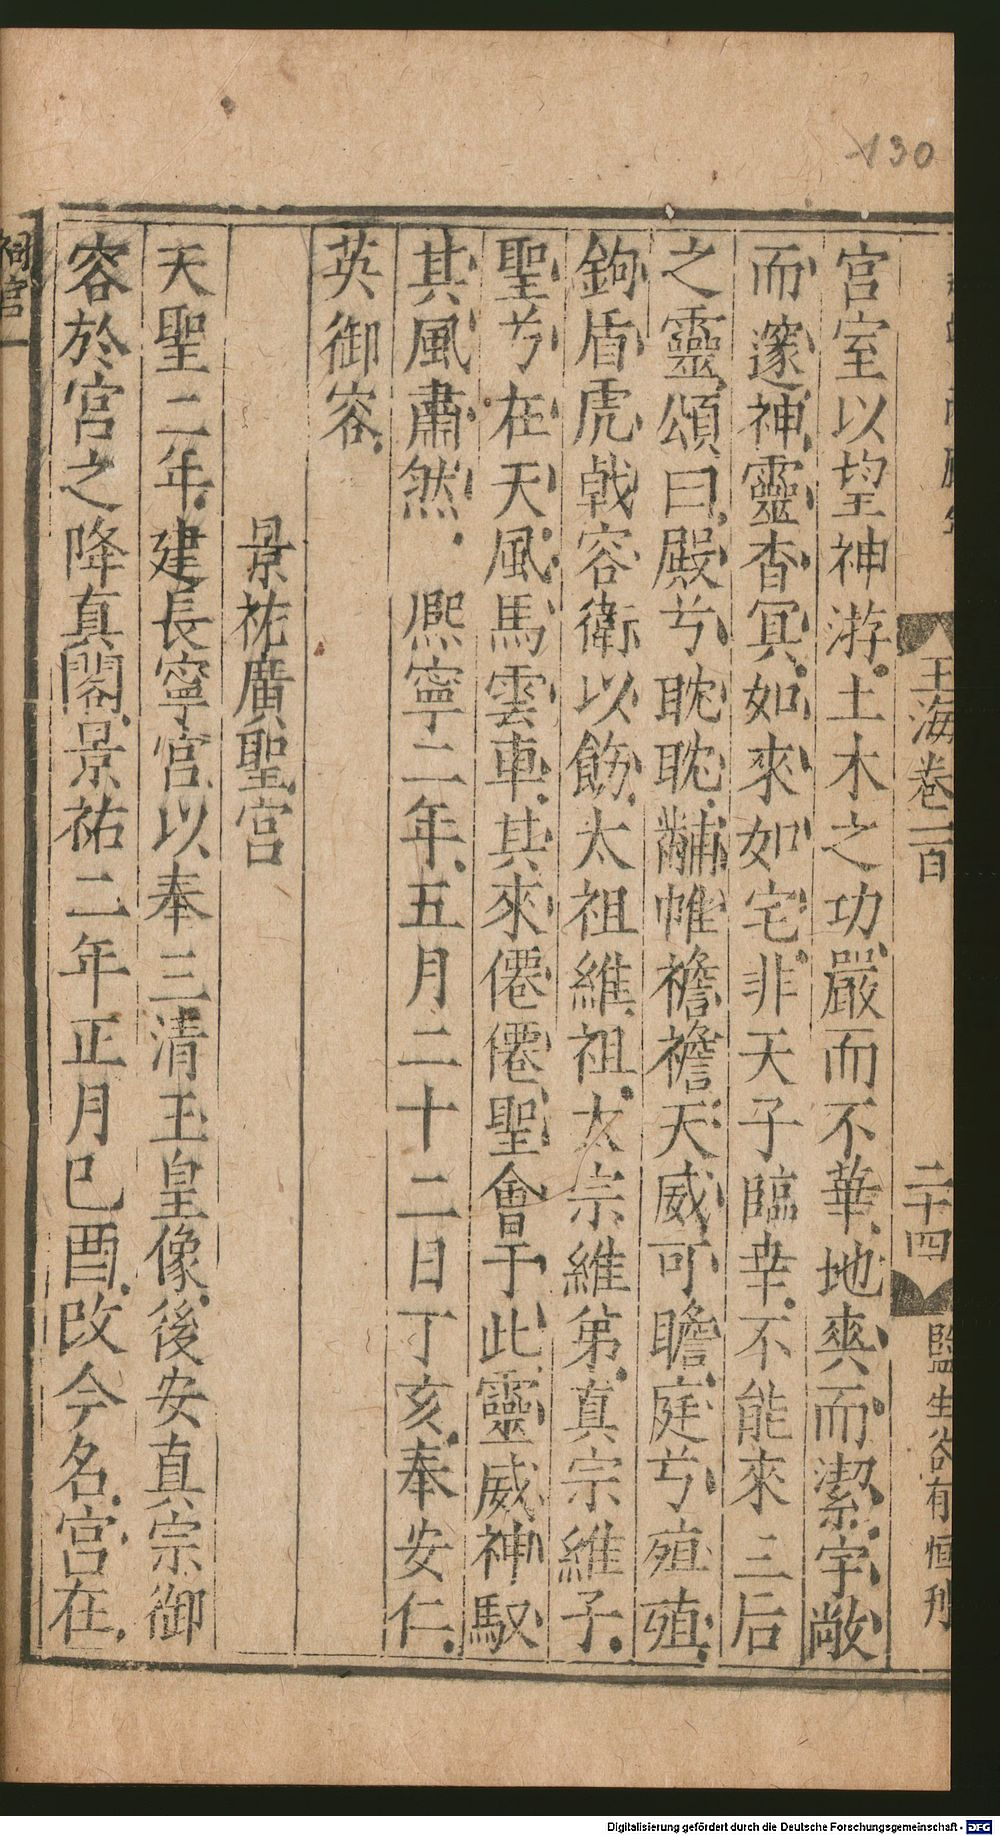 130
玉海卷一百
二十四
監生谷有恒刋
宮室以望神游土木之功嚴而不華地爽而潔宇敞
而邃神靈杳冥如來如宅非天子臨幸不能來三后
之靈頌曰殿兮耽耽黼帷襜襜天威可瞻庭兮殖殖
鉤盾虎戟容衛以飭太祖維祖太宗維弟真宗維子
聖兮在天風馬雲車其來僊僊聖會于此靈威神馭
其風肅然 熈寧二年五月二十二日丁亥奉安仁
英御容
景祐廣聖宮
天聖二年建長寧宮以奉三清玉皇像後安真宗御
容於宮之降真閣景祐二年正月巳酉改今名宮在
祠宮一
Digitalisierung gefördert durch die Deutsche Forschungsgemeinschaft - DFG